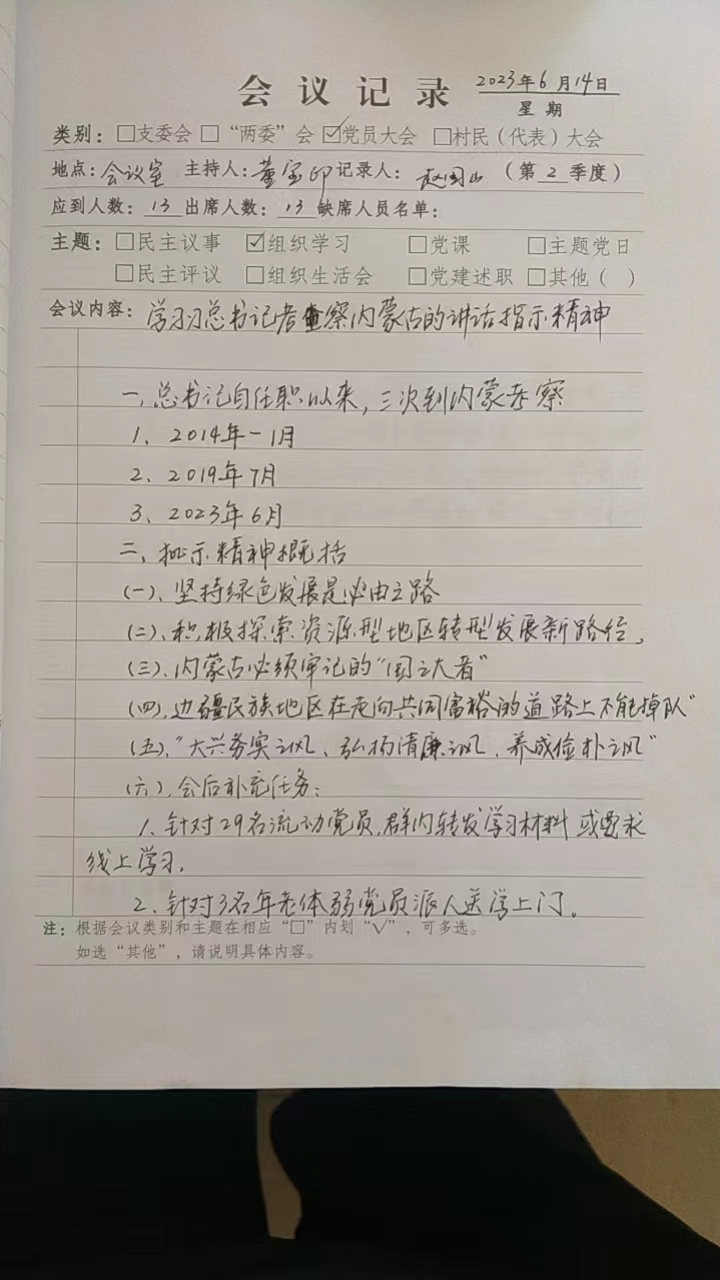 会议记录 2023年6月14日
星期
类别：□支委会 □“两委”会 ☑党员大会 □村民（代表）大会
地点：会议室 主持人：董宝印 记录人：赵国山 （第2季度）
应到人数：13 出席人数：13 缺席人员名单：
主题：□民主议事 ☑组织学习 □党课 □主题党日
□民主评议 □组织生活会 □党建述职 □其他（ ）
会议内容：学习习总书记考察内蒙古的讲话指示精神
一、总书记自任职以来，三次到内蒙考察
1、2014年-1月
2、2019年7月
3、2023年6月
二、批示精神概括
（一）、坚持绿色发展是必由之路
（二）、积极探索资源型地区转型发展新路径。
（三）、内蒙古必须牢记的“国之大者”
（四）、边疆民族地区在走向共同富裕的道路上不能掉队”
（五）、“大兴务实之风、弘扬清廉之风、养成俭朴之风”
（六）、会后补充任务：
1、针对29名流动党员，群内转发学习材料或要求
线上学习。
2、针对3名年老体弱党员派人送学上门。
注：根据会议类别和主题在相应“□”内划“√”，可多选。
如选“其他”，请说明具体内容。